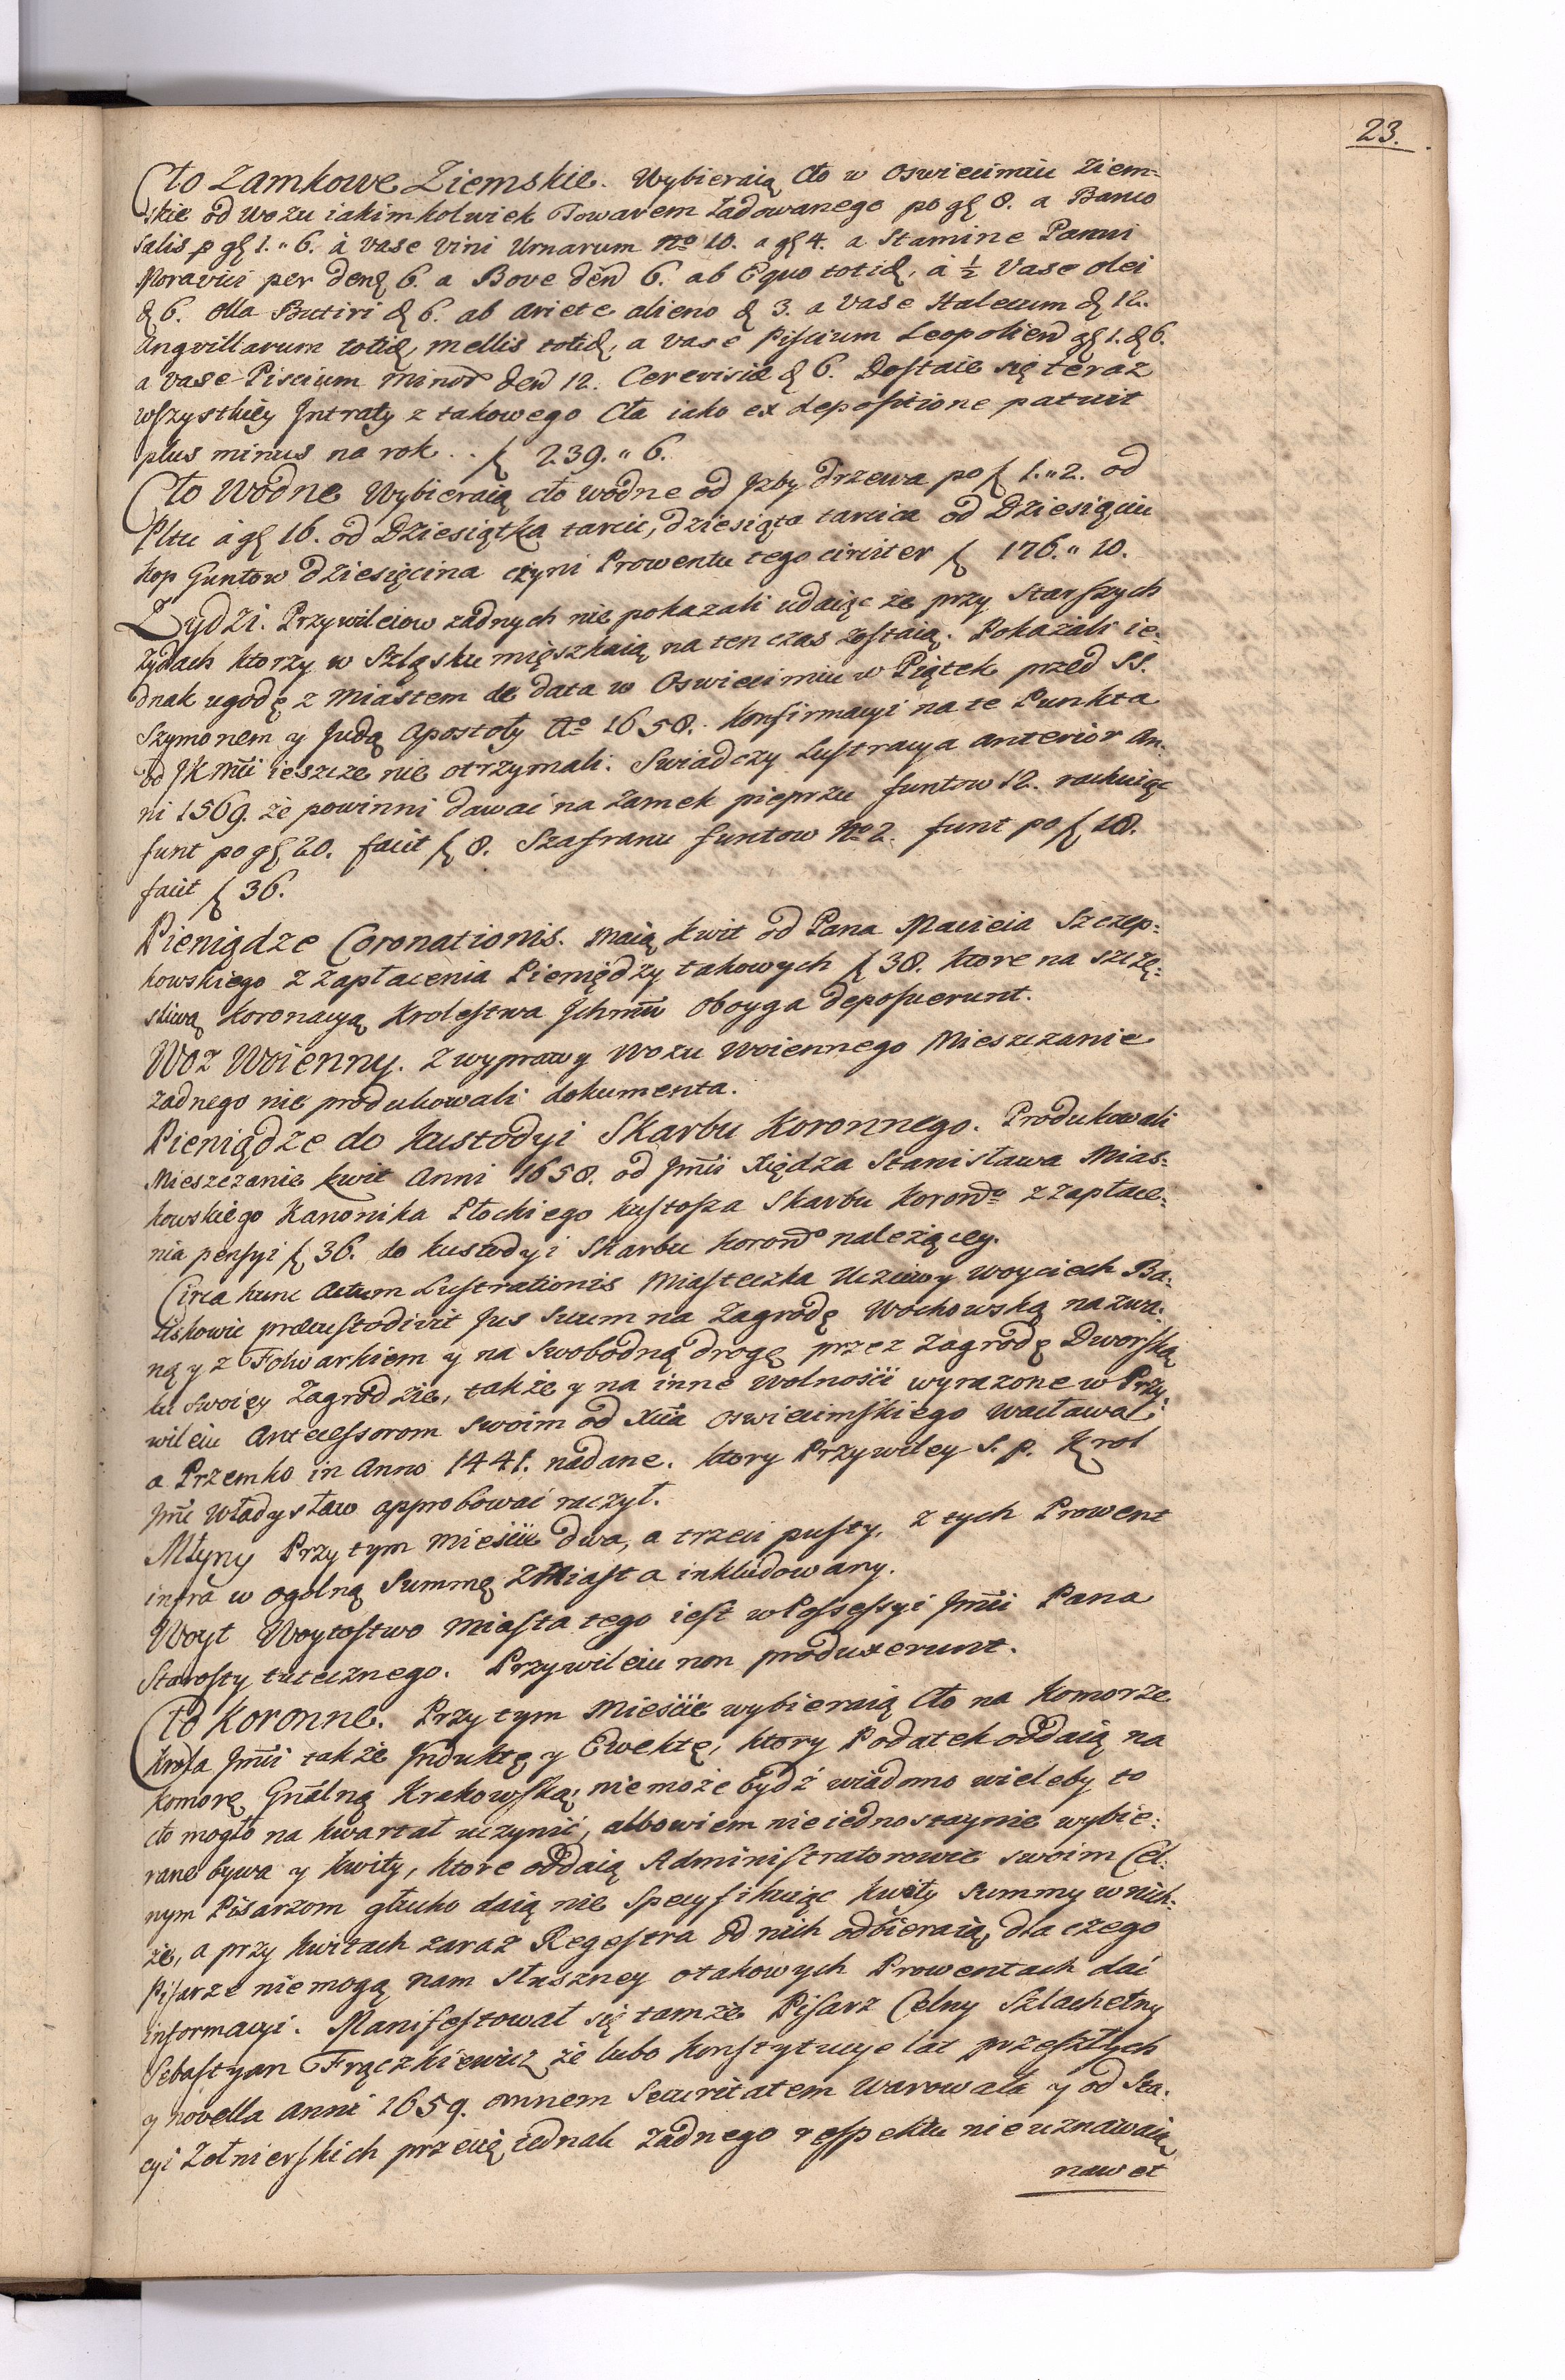 23.
Cło Zamkowe Ziemskie. Wybieraią Cło w Oswiecimiu Ziem-
skie od Wozu iakimkolwiek Towarem Ładowanego po gℓ 8. a Banco
Salis p gℓ 1." 6. à Vase Vini Urnarum No 10. a gℓ 4. a Stamine Panni
Moravici per denℓ 6. a Bove den 6. ab Equo totidℓ, à ½ Vase olei
dℓ 6. Olla Butiri dℓ 6. ab Ariete alieno dℓ 3. a Vase Halecum dℓ 12.
Angvillarum totidℓ, mellis totidℓ, a Vase Piscium Leopolien gℓ 1. dℓ 6.
a Vase Piscium Minor den 12. Cerevisiæ dℓ 6. Dostaie się teraz
wszystkiey Jntraty z takowego Cła iako ex depositione patuit
plus minus na rok .. ƒ 239." 6.
Cło Wodne Wybieraią cło wodne od Jzby drzewa po ƒ 1." 2. od
Pltu à gℓ 16. od Dziesiątka tarcic, dziesiąta tarcica od Dziesiąciu
kop Guntow dziesięcina czyni Prowentu tego circiter ƒ 176." 10.
Zydzi. Przywileiow zadnych nie pokazali udaiąc że przy Starszych
Zydach ktorzy w Szląsku mięszkaią na ten czas zostaią. Pokazali ie-
dnak ugodę z Miastem de data w Oswiecimiu w Piątek przed SS.
Szymonem y Judą Apostoły Ao 1658. Konfirmacyi na te Punkta
od JKMci ieszcze nie otrzymali. Swiadczy Lustracya anterior An-
ni 1569. że powinni dawać na Zamek pieprzu funtow 12. rachuiąc
funt po gℓ 20. facit ƒ 8. Szafranu funtow No 2. funt po ƒ 18.
facit ƒ 36.
Pieniądze Coronationis. Maią kwit od Pana Macieia Szczep:
kowskiego z zapłacenia Pieniędzy takowych ƒ 38. ktore na szczę:
sliwą Koronacyą Krolestwa Jchmw oboyga deposuerunt.
Woz Woienny. Z wyprawy Wozu Woiennego Mieszczanie
zadnego nie produkowali dokumenta.
Pieniądze do Kustodyi Skarbu Koronnego. Produkowali
Mieszczanie kwit Anni 1658. od Jmci Xiędza Stanisława Mias:
kowskiego Kanonika Płockiego Kustosza Skarbu Koronо z zapłace:
nia pensyi ƒ 36. do kustodyi Skarbu Koronо należącey.
Circa hunc Actum Lustrationis Miasteczka Uczciwy Woyciech Ba:
liskowic præcustodivit Jus Suum na Zagrodę Wochowską nazwa:
ną y z Folwarkiem y na Swobodną drogę przez Zagrodę Dworską
ku swoiey Zagrodzie, także y na inne wolności wyrazone w Przy:
wileiu Antecessorom swoim od Xcia Oswiecimskiego Wacława
a Przemko in Anno 1441. nadane. ktory Przywiley S. p. Krol
Jmć Władysław approbować raczył.
Młyny Przy tym Mieście dwa, a trzeci pusty, z tych Prowent
infra w ogolną Summę z Miasta inkludowany.
Woyt Woytostwo Miasta tego iest w Possessyi Jmci Pana
Starosty tutecznego. Przywileiu non produxerunt.
Cło Koronne. Przy tym Mieście wybieraią Cło na Komorze
Krola Jmci także Jnduktę y Ewektę, ktory Podatek oddaią na
Komorę Gnalną Krakowską, niemoże bydź wiadomo wieleby to
cło mogło na kwartał uczynić, albowiem nieiednostaynie wybie:
rane bywa y kwity, ktore oddaią Administratorowie swoim Cel:
nym Pisarzom głucho daią nie Specyfikuiąc kwity Summy w nich-
że, a przy kwitach zaraz Regestra od nich odbieraią, dla czego
Pisarze niemogą nam słuszney otakowych Prowentach dać
informacyi. Manifestował się tamże Pisarz Celny Szlachetny
Sebastyan Frączkiewicz że lubo Konstytucye lat przeszłych
y novella anni 1659. omnem Securitatem Warowała y od Sta:
cyi Zołnierskich przecię iednak żadnego respektu nieuznawaią
nawet